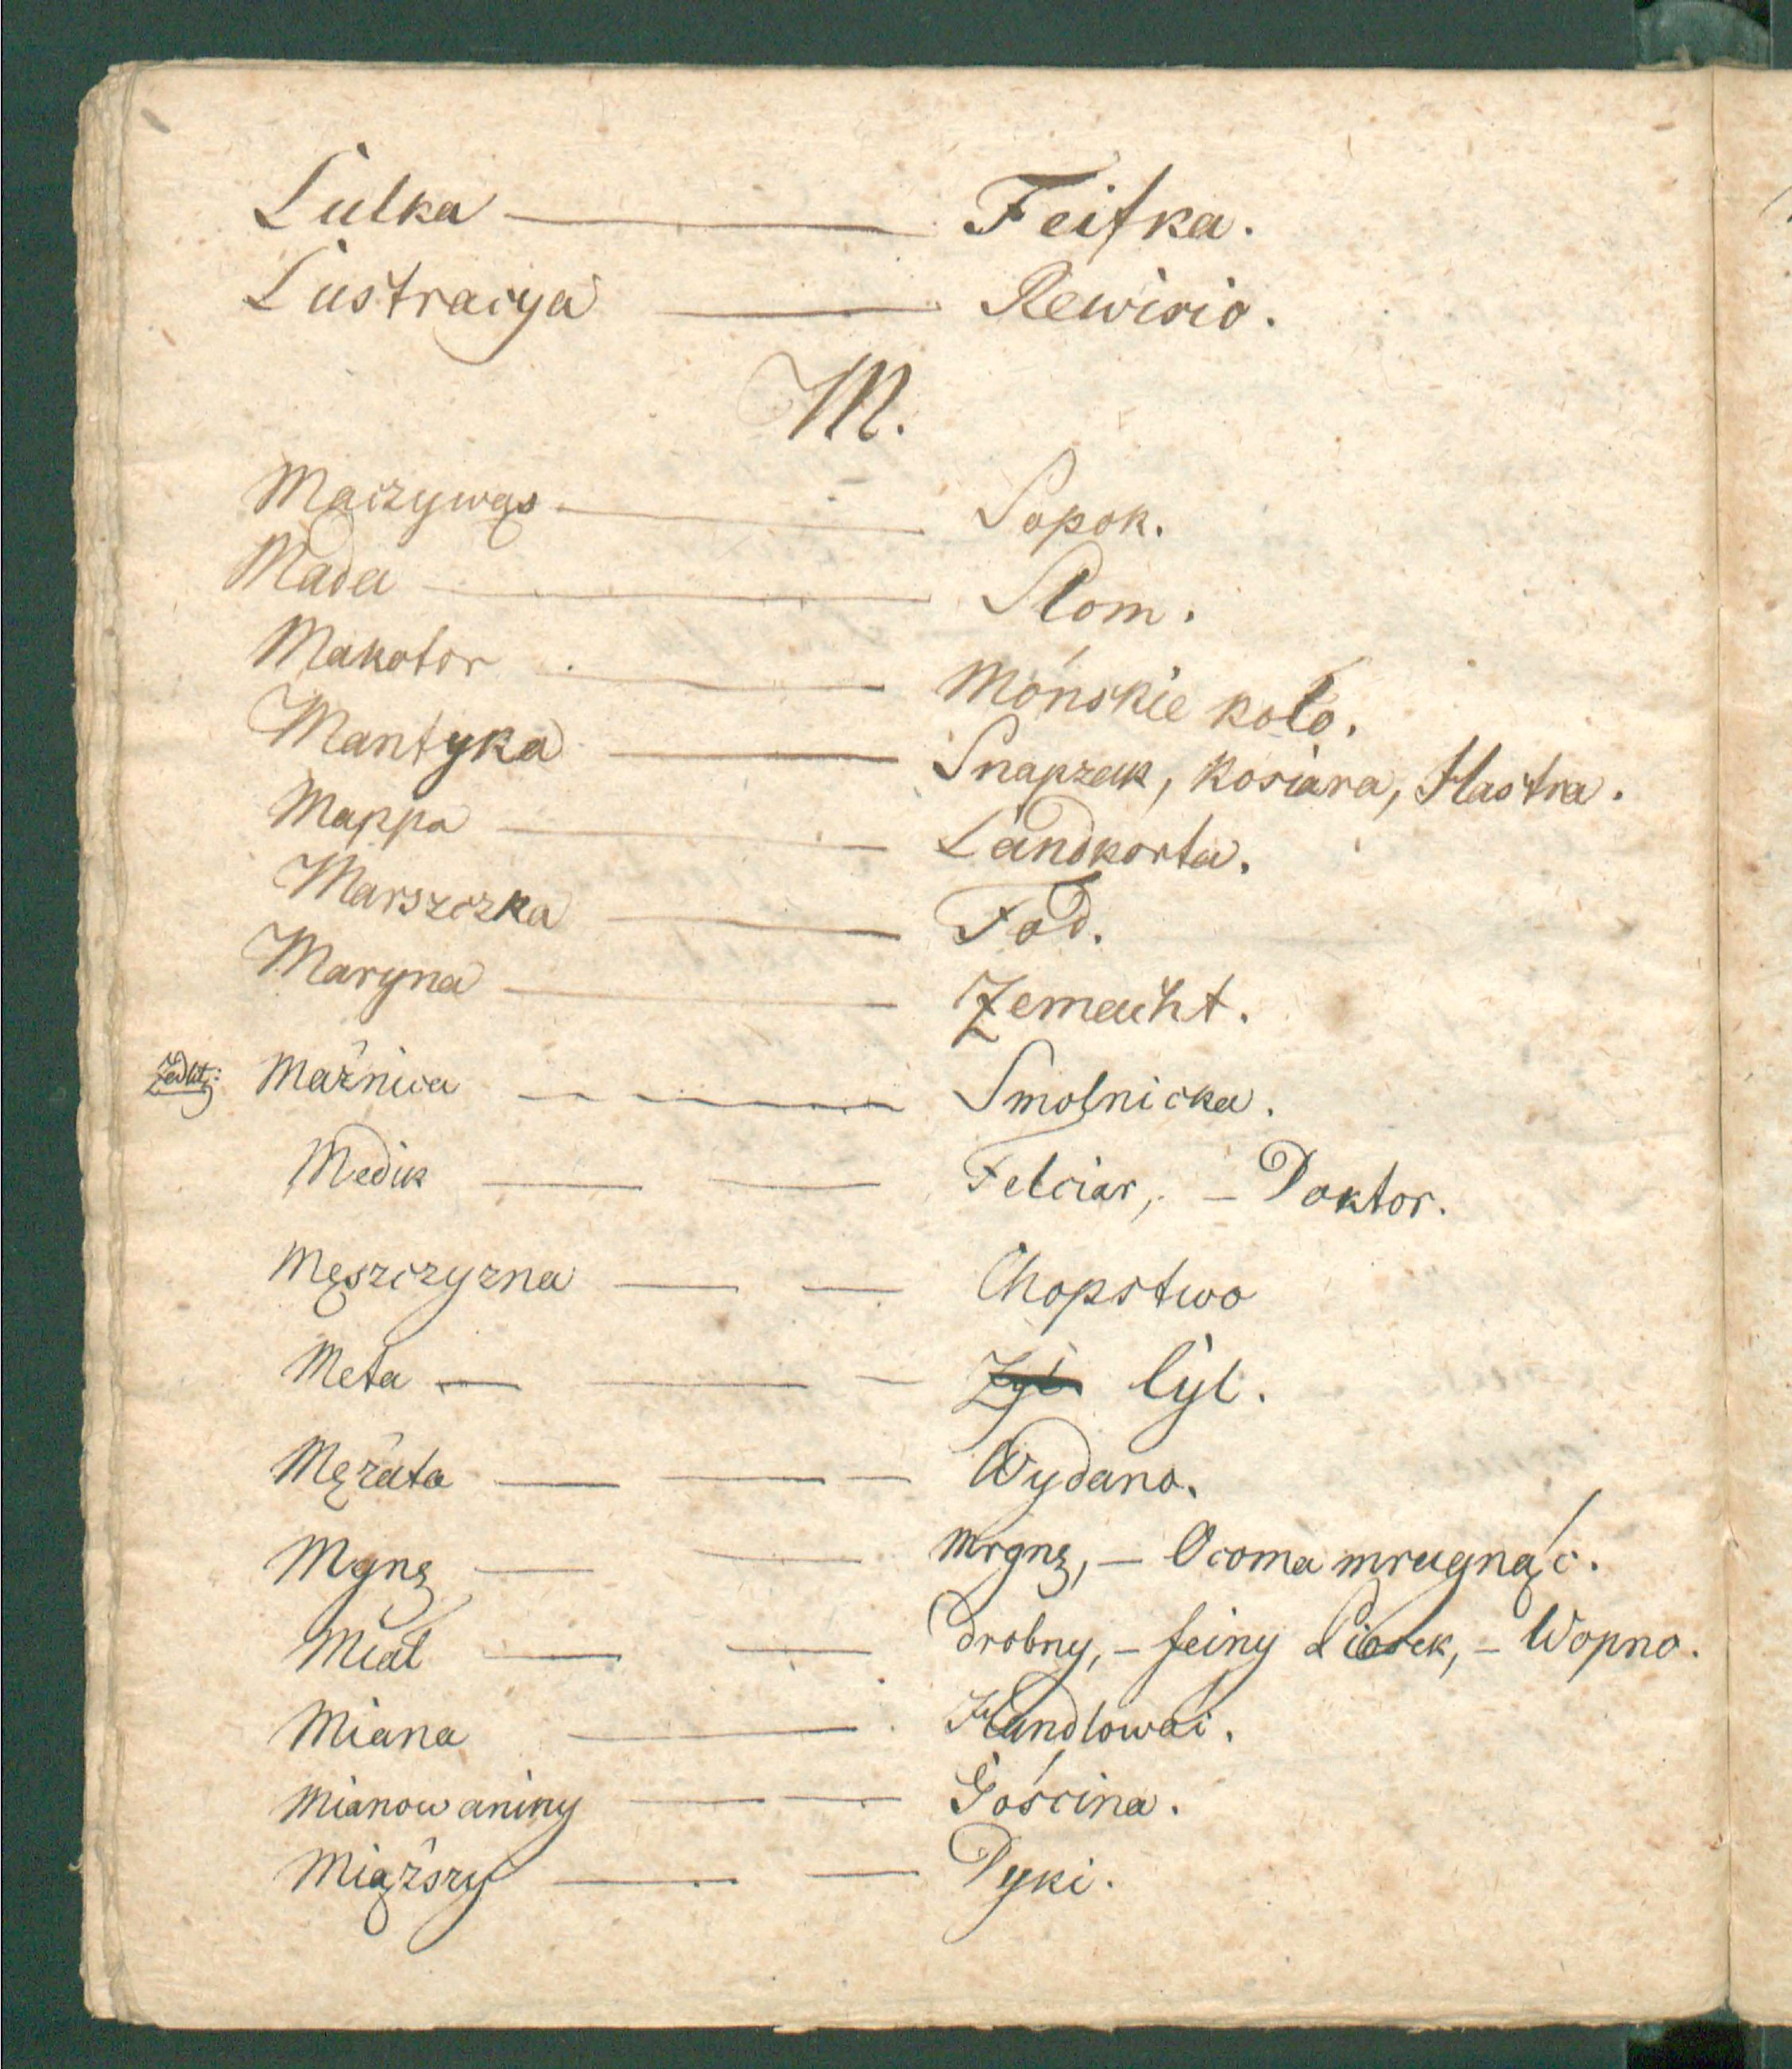 Lulka — Feifka.
Lustracya — Rewisio.
M.
Maczywąs — Sopok.
Mada — Slom.
Makotor — Mońskie koło.
Mantyka — Snapzak, Kosiara, Hastra.
Mappa — Landkorta.
Marszczka — Fod.
Maryna — Zemacht.
Zedlitz: Maźnica — Smolnicka.
Medik — — Felciar, — Doktor.
Męszczyzna — — Chopstwo
Meta — — — Zyl lyl.
Mężata — — — Wydano.
Mgnę — — mrgnę, — Ocoma mrugnąć.
Miał — — drobny, — feiny Piosek, — Wopno.
Miana — Handlowai.
Mianowaniny — — Gościna.
Miąższy — — Dyki.